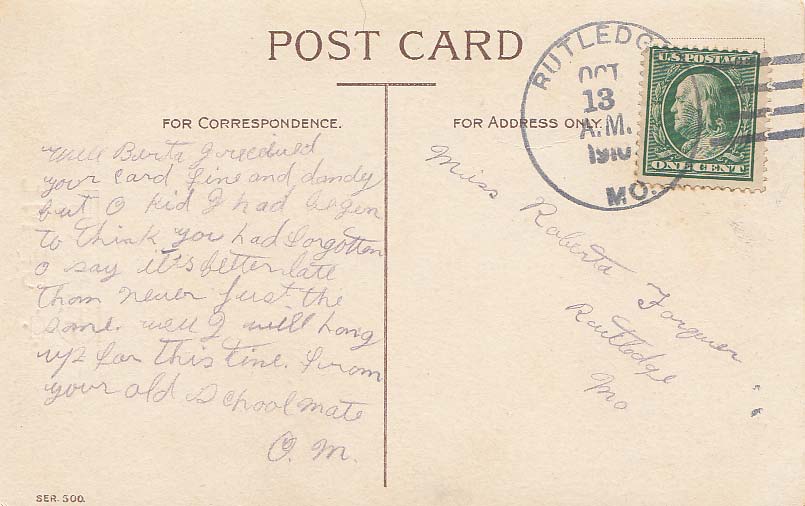 POST CARD
FOR CORRESPONDENCE.
Well Berta I recieved
your card fine and dandy
but O kid I had begen
to think you had forgotten
o say it's better late
than never just the
same. well I will hang
up for this time. from
your old school mate
O. M.
SER. 500.
FOR ADDRESS ONLY.
RUTLEDG
OCT
13
A.M.
1910
MO.
U.S. POSTAGE
ONE CENT
Miss Roberta Forquer
Rutledge
Mo